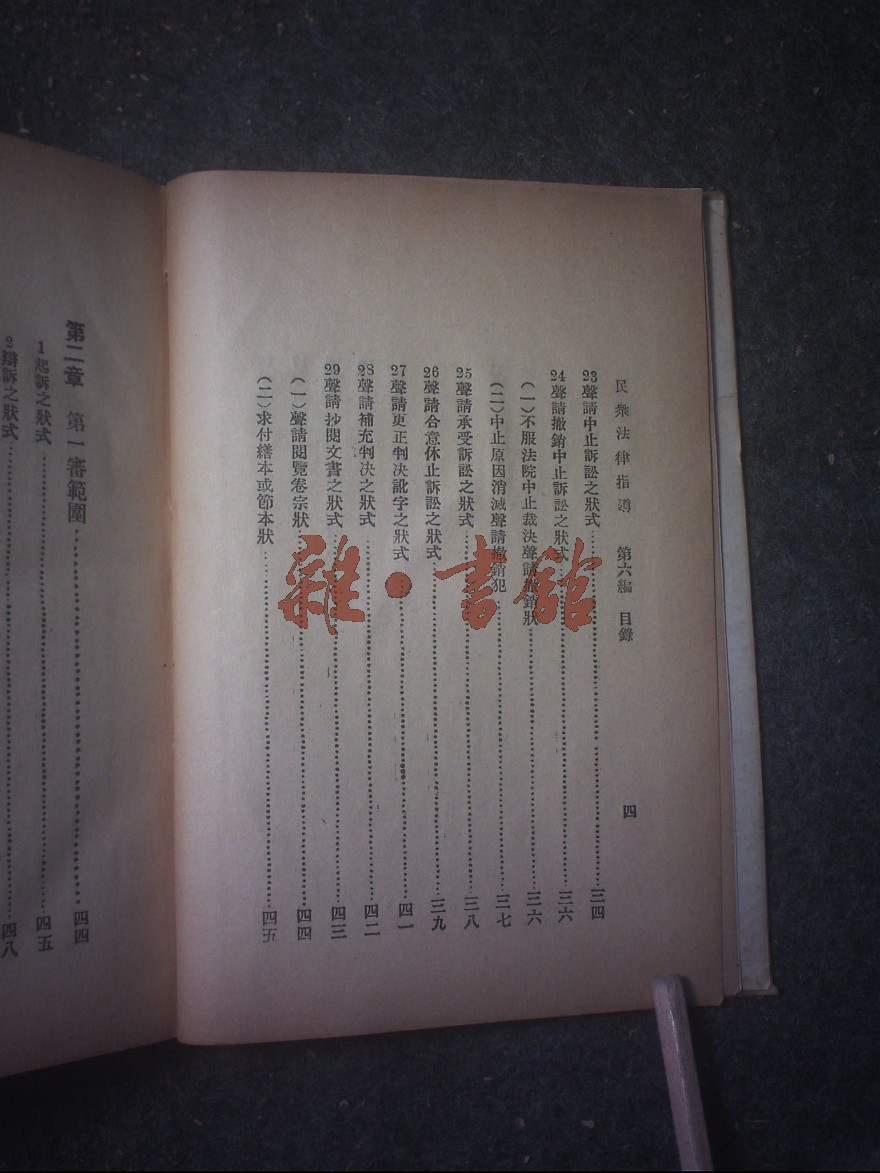 民衆法律指導　第六編　目錄　四
23聲請中止訴訟之狀式……三四
24聲請撤銷中止訴訟之狀式……三六
（一）不服法院中止裁決聲請撤銷狀……三六
（二）中止原因消滅聲請撤銷犯……三七
25聲請承受訴訟之狀式……三八
26聲請合意休止訴訟之狀式……三九
27聲請更正判決訛字之狀式……四一
28聲請補充判决之狀式……四二
29聲請抄閱文書之狀式……四三
（一）聲請閱覽卷宗狀……四四
（二）求付繕本或節本狀……四五
第二章　第一審範圍……四四
1起訴之狀式……四五
2辯訴之狀式……四八
雜·書館